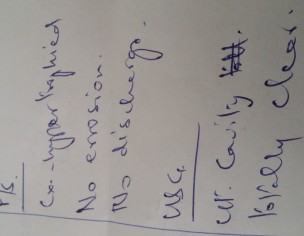 P/S.
Cx-hypertrophied
No erosion.
No discharge.
USG
Ut. Cavity
totally clear.